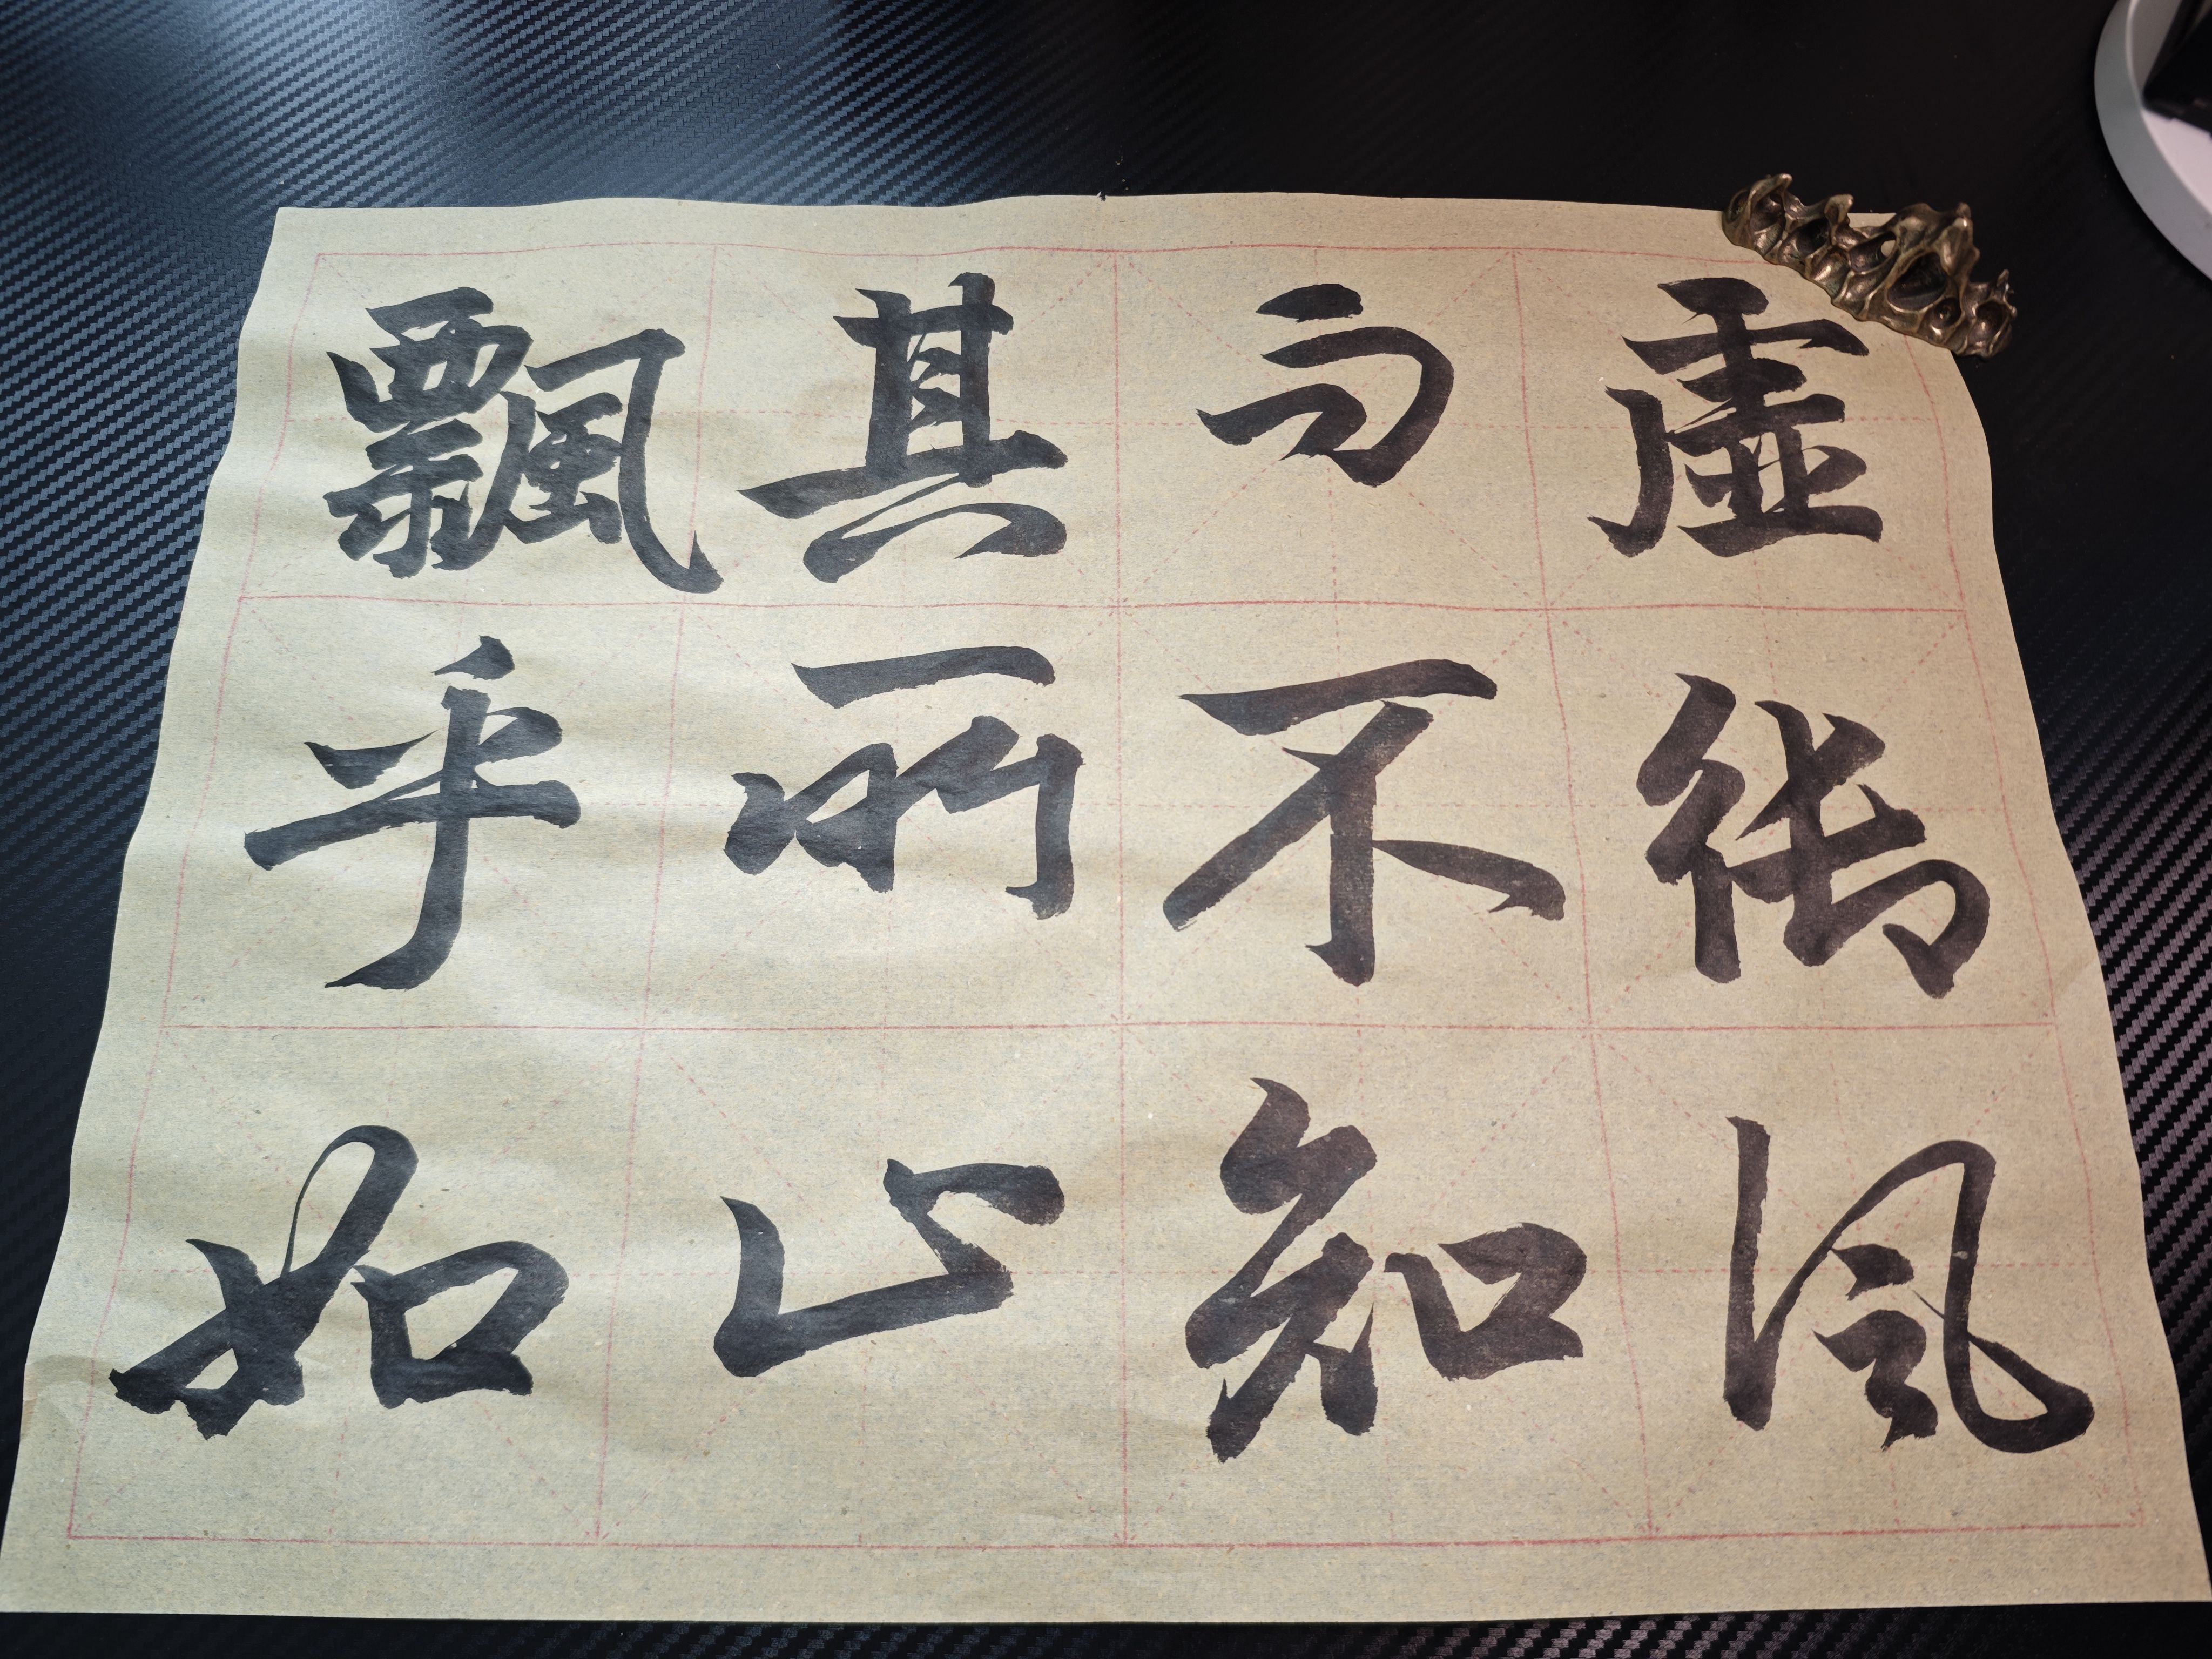 虛御風
而不知
其所止
飄乎如